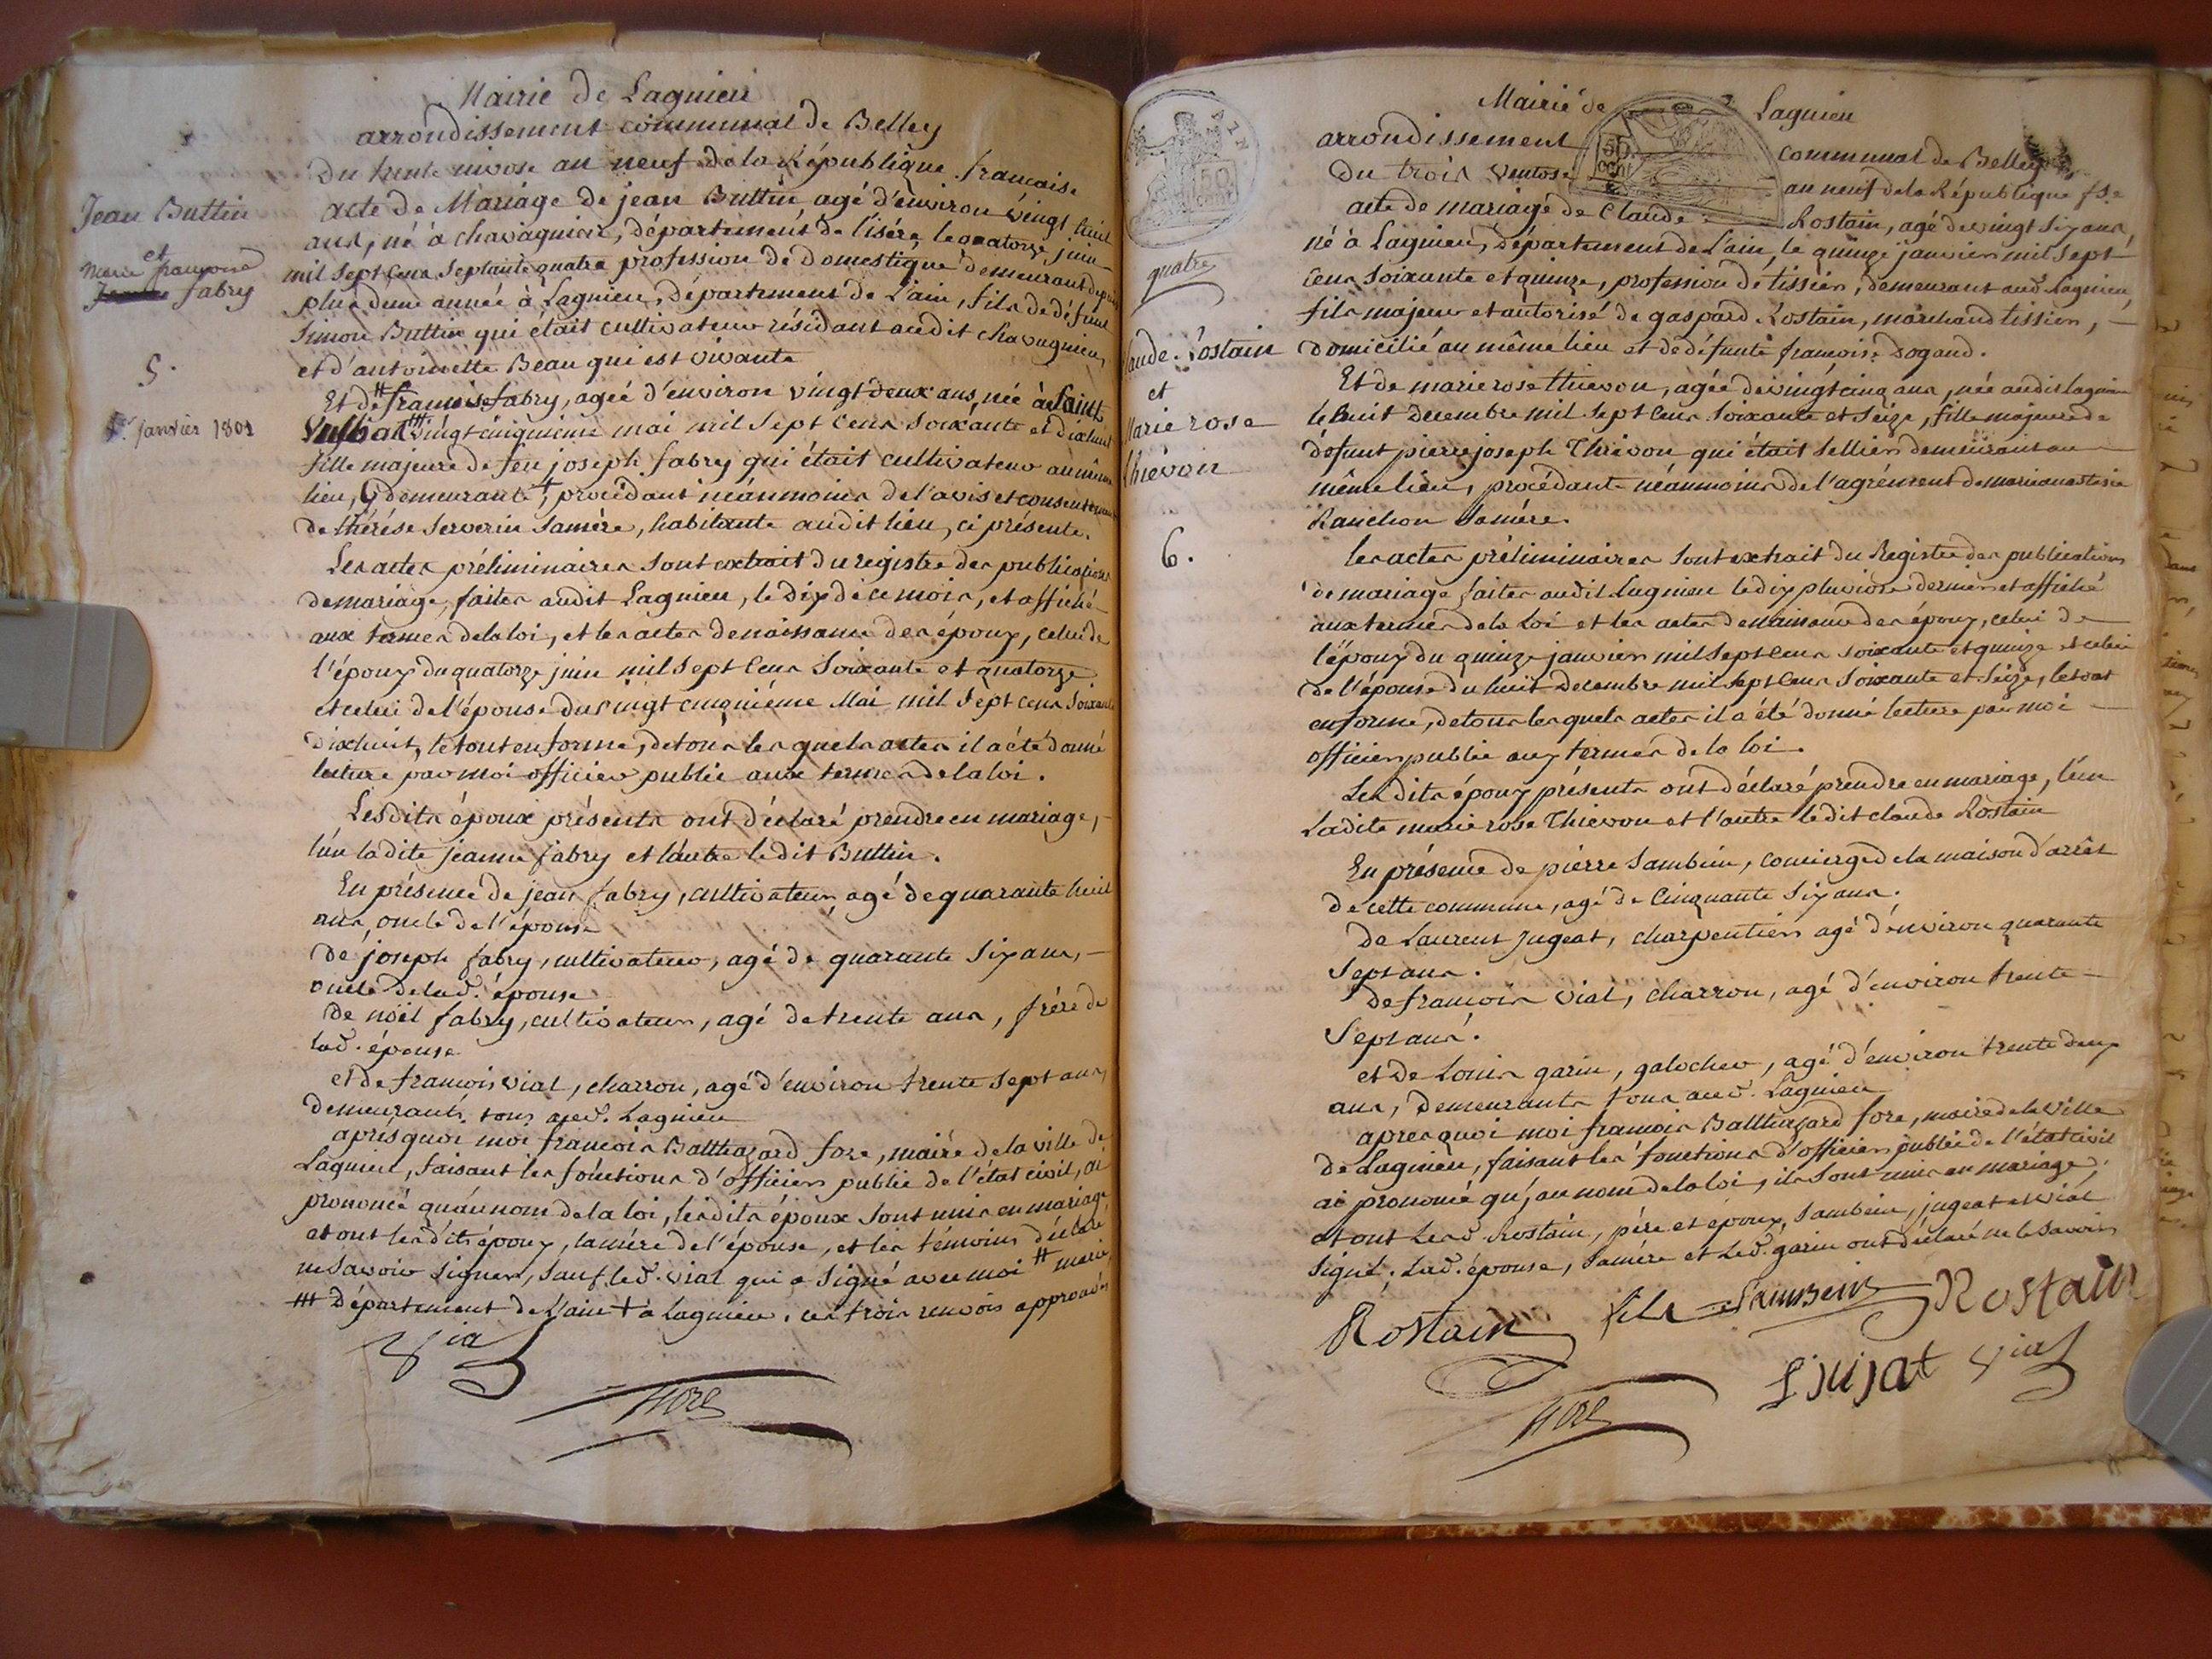 Mairie de Lagnieu
arrondissement communal de Belley
Du trente nivose an neuf de la République francaise
Jean Buttin
et
Marie françoise
fabry
5.
janvier 1801
acte de Mariage de jean Buttin, agé d'environ vingt huit
ans, né à chavagnieu, département de l'isére, le quatorze juin
mil sept cens septante quatre profession de domestique demeurant depuis
plus d'une année à Lagnieu, département de L'ain, fils de défunt
Simon Buttin qui était cultivateur résidant audit chavagnieu,
et d'antoinette Beau qui est vivante
Et de # francoise fabry, agée d'environ vingt deux ans, née à Saint
Sulbat ## vingt cinquieme mai mil sept cens soixante et dixhuit
fille majeure de feu joseph fabry qui était cultivateur au même
lieu, demeurante +, procédant néanmoins de l'avis et consentement
de thérése Serverin sa mére, habitante audit lieu, ci présente.
Les actes préliminaires sont extrait du registre des publications
de mariage, faites audit Lagnieu, le dix de ce mois, et affiché
aux termes de la loi, et les actes de naissance des époux, celui de
l'époux du quatorze juin mil sept cens soixante et quatorze
et celui de l'épouse du vingt cinquiéme Mai mil sept cens soixante
dixhuit, le tout en forme, de tous les quels actes il a été donné
lecture par moi officier public aux termes de la loi.
Lesdits époux présents ont déclaré prendre en mariage,
l'un ladite jeanne fabry et l'autre ledit Buttin.
En présence de jean fabry, cultivateur, agé de quarante huit
ans, oncle de l'épouse
de joseph fabry, cultivateur, agé de quarante six ans,
oncle de lad. épouse
de noël fabry, cultivateur, agé de trente ans, frére de
lad. épouse
et de francois vial, charron, agé d'environ trente sept ans,
demeurants tous aud. Lagnieu
aprés quoi moi francois Balthazard fore, maire de la ville de
Lagnieu, faisant les fonctions d'officier public de l'état civil, ai
prononcé qu'au nom de la loi, lesdits époux sont unis en mariage
et ont lesdits époux, la mére de l'épouse, et les témoins déclaré
ne savoir signer, sauf led. vial qui a signé avec moi # marie
## Département de L'ain + à Lagnieu. ces trois renvois approuvés
Vial
fore
Mairie de Lagnieu
arrondissement communal de Belley
Du trois ventose an neuf de la République fse
50
quatre
aude Rostain
et
Marie rose
thiévon
6.
acte de mariage de Claude Rostain, agé de vingt six ans,
né à Lagnieu, département de L'ain, le quinze janvier mil sept
cens soixante et quinze, profession de tissier, demeurant aud. Lagnieu,
fils majeur et autorisé de gaspard Rostain, marchand tissier,
domicilié au même lieu et de défunte francoise dogand.
Et de marie rose thievon, agée de vingt cinq ans, née audit lagnieu
le huit decembre mil sept cens soixante et seize, fille majeure de
défunt pierre joseph Thievon qui était sellier demeurant au
même lieu, procédante néanmoins de l'agrément de marie anastasie
Ranchon sa mére.
les actes préliminaires sont extrait du Registre des publications
de mariage faites audit Lagnieu le dix pluviose dernier et affiché
aux termes de la Loi et les actes de naissance des époux, celui de
l'époux du quinze janvier mil sept cens soixante et quinze et celui
de l'épouse du huit decembre mil sept cens soixante et seize, le tout
en forme, de tous les quels actes il a été donné lecture par moi
officier public aux termes de la loi.
Lesdits époux présents ont déclaré prendre en mariage, l'un
Ladite marie rose Thievon et l'autre ledit claude Rostain
En présence de pierre Sambein, concierge de la maison d'arrêt
de cette commune, agé de cinquante six ans.
de Laurent jugeat, charpentier agé d'environ quarante
sept ans.
de francois vial, charron, agé d'environ trente
sept ans.
et de Louis garin, galocher, agé d'environ trente deux
ans, demeurants tous aud. Lagnieu
apres quoi moi francois Balthazard fore, maire de la ville
de Lagnieu, faisant les fonctions d'officier public de l'état civil
ai prononcé qu'au nom de la loi, ils sont unis en mariage,
et ont lesd. Rostain, pére et époux, Sambein, jugeat et vial
signé. Lad. épouse, sa mére et led. garin ont déclaré ne le savoir
Rostain fils Sambein Rostain
L jujat Vial
fore